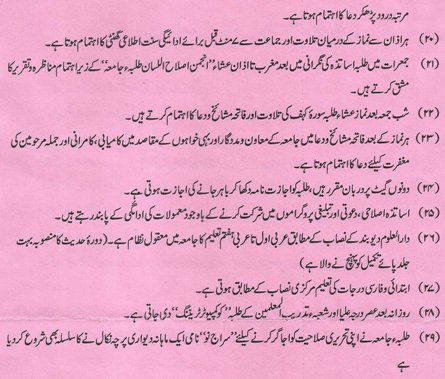 مرتبہ درود پڑھکر دعا کا اہتمام ہوتا ہے۔
(۲۰) ہر اذان سے نماز کے درمیان تلاوت اور جماعت سے ۷ منٹ قبل برائے ادائیگی سنت اطلاعی گھنٹی کا اہتمام ہوتا ہے۔
(۲۱) جمعرات میں طلبہ اساتذہ کی نگرانی میں بعد مغرب تا اذان عشاء "انجمن اصلاح اللسان طلبہ جامعہ" کے زیر اہتمام مناظرہ و تقریر کا
مشق کرتے ہیں۔
(۲۲) شب جمعہ بعد نماز عشاء طلبہ سورۂ کہف کی تلاوت اور فاتحہ مشائخ و دعا کا اہتمام کرتے ہیں۔
(۲۳) ہر نماز کے بعد فاتحہ مشائخ و دعا میں جامعہ کے معاون و مددگار اور بہی خواہوں کے مقاصد میں کامیابی، کامرانی اور جملہ مرحومین کی
مغفرت کیلئے دعا کا اہتمام ہوتا ہے۔
(۲۴) دونوں گیٹ پر دربان مقرر ہیں، طلبہ کو اجازت نامہ دکھا کر باہر جانے کی اجازت ہوتی ہے۔
(۲۵) اساتذہ اصلاحی، دعوتی اور تبلیغی پروگراموں میں شرکت کرنے کے باوجود معمولات کی ادائگی کے پابند رہتے ہیں۔
(۲۶) دارالعلوم دیوبند کے نصاب کے مطابق عربی اول تا عربی ہفتم تعلیم کا جامعہ میں معقول نظام ہے۔ (دورۂ حدیث کا منصوبہ بہت
جلد پائے تکمیل کو پہنچنے والا ہے)
(۲۷) ابتدائی و فارسی درجات کی تعلیم مرکزی نصاب کے مطابق ہوتی ہے۔
(۲۸) روزانہ بعد عصر درجہ علیا اور شعبۂ تدریب المعلمین کے طلبہ کو "کمپیوٹر ٹریننگ" دی جاتی ہے۔
(۲۹) طلبہ جامعہ نے اپنی تحریری صلاحیت کو اجاگر کرنے کیلئے "سراج نو" نامی ایک ماہانہ دیواری پرچہ نکالنے کا سلسلہ بھی شروع کر دیا
ہے